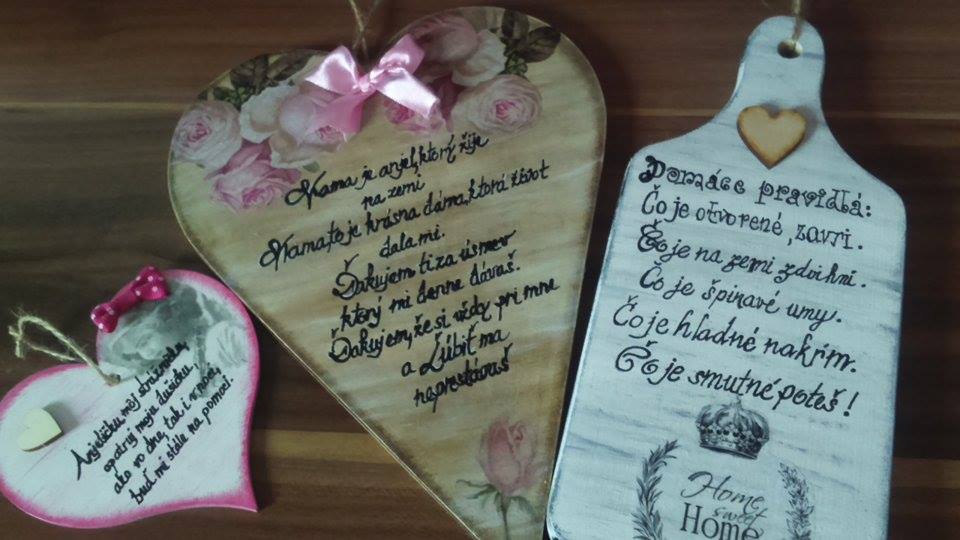 Anjeličku, môj strážničku,
opatruj moju dušičku,
ako vo dne, tak i v noci,
buď mi stále na pomoci.
Mama je anjel, ktorý žije
na zemi
Mama to je krásna dáma, ktorá život
dala mi.
Ďakujem ti za úsmev
ktorý mi denne dávaš.
Ďakujem, že si vždy pri mne
a Ľúbiť ma
neprestávaš
Domáce pravidlá:
Čo je otvorené, zavri.
Čo je na zemi zdvihni.
Čo je špinavé umy.
Čo je hladné nakŕm.
Čo je smutné poteš!
Home
sweet
Home